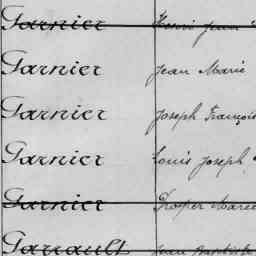 Garnier Henri Jean
Garnier Jean Marie
Garnier Joseph François
Garnier Louis Joseph
Garnier Prosper Marie
Garrault Jean Baptiste